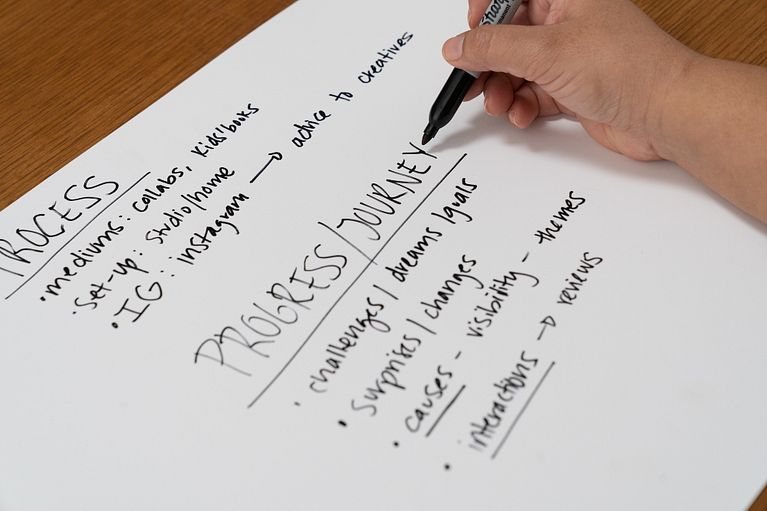 PROCESS
• mediums: collabs, kids' books
• set-up: studio/home
• IG: instagram → advice to creatives
PROGRESS/JOURNEY
• challenges/dreams/goals
• surprises/changes
• causes - visibility - themes
• interactions → reviews
Sharpie